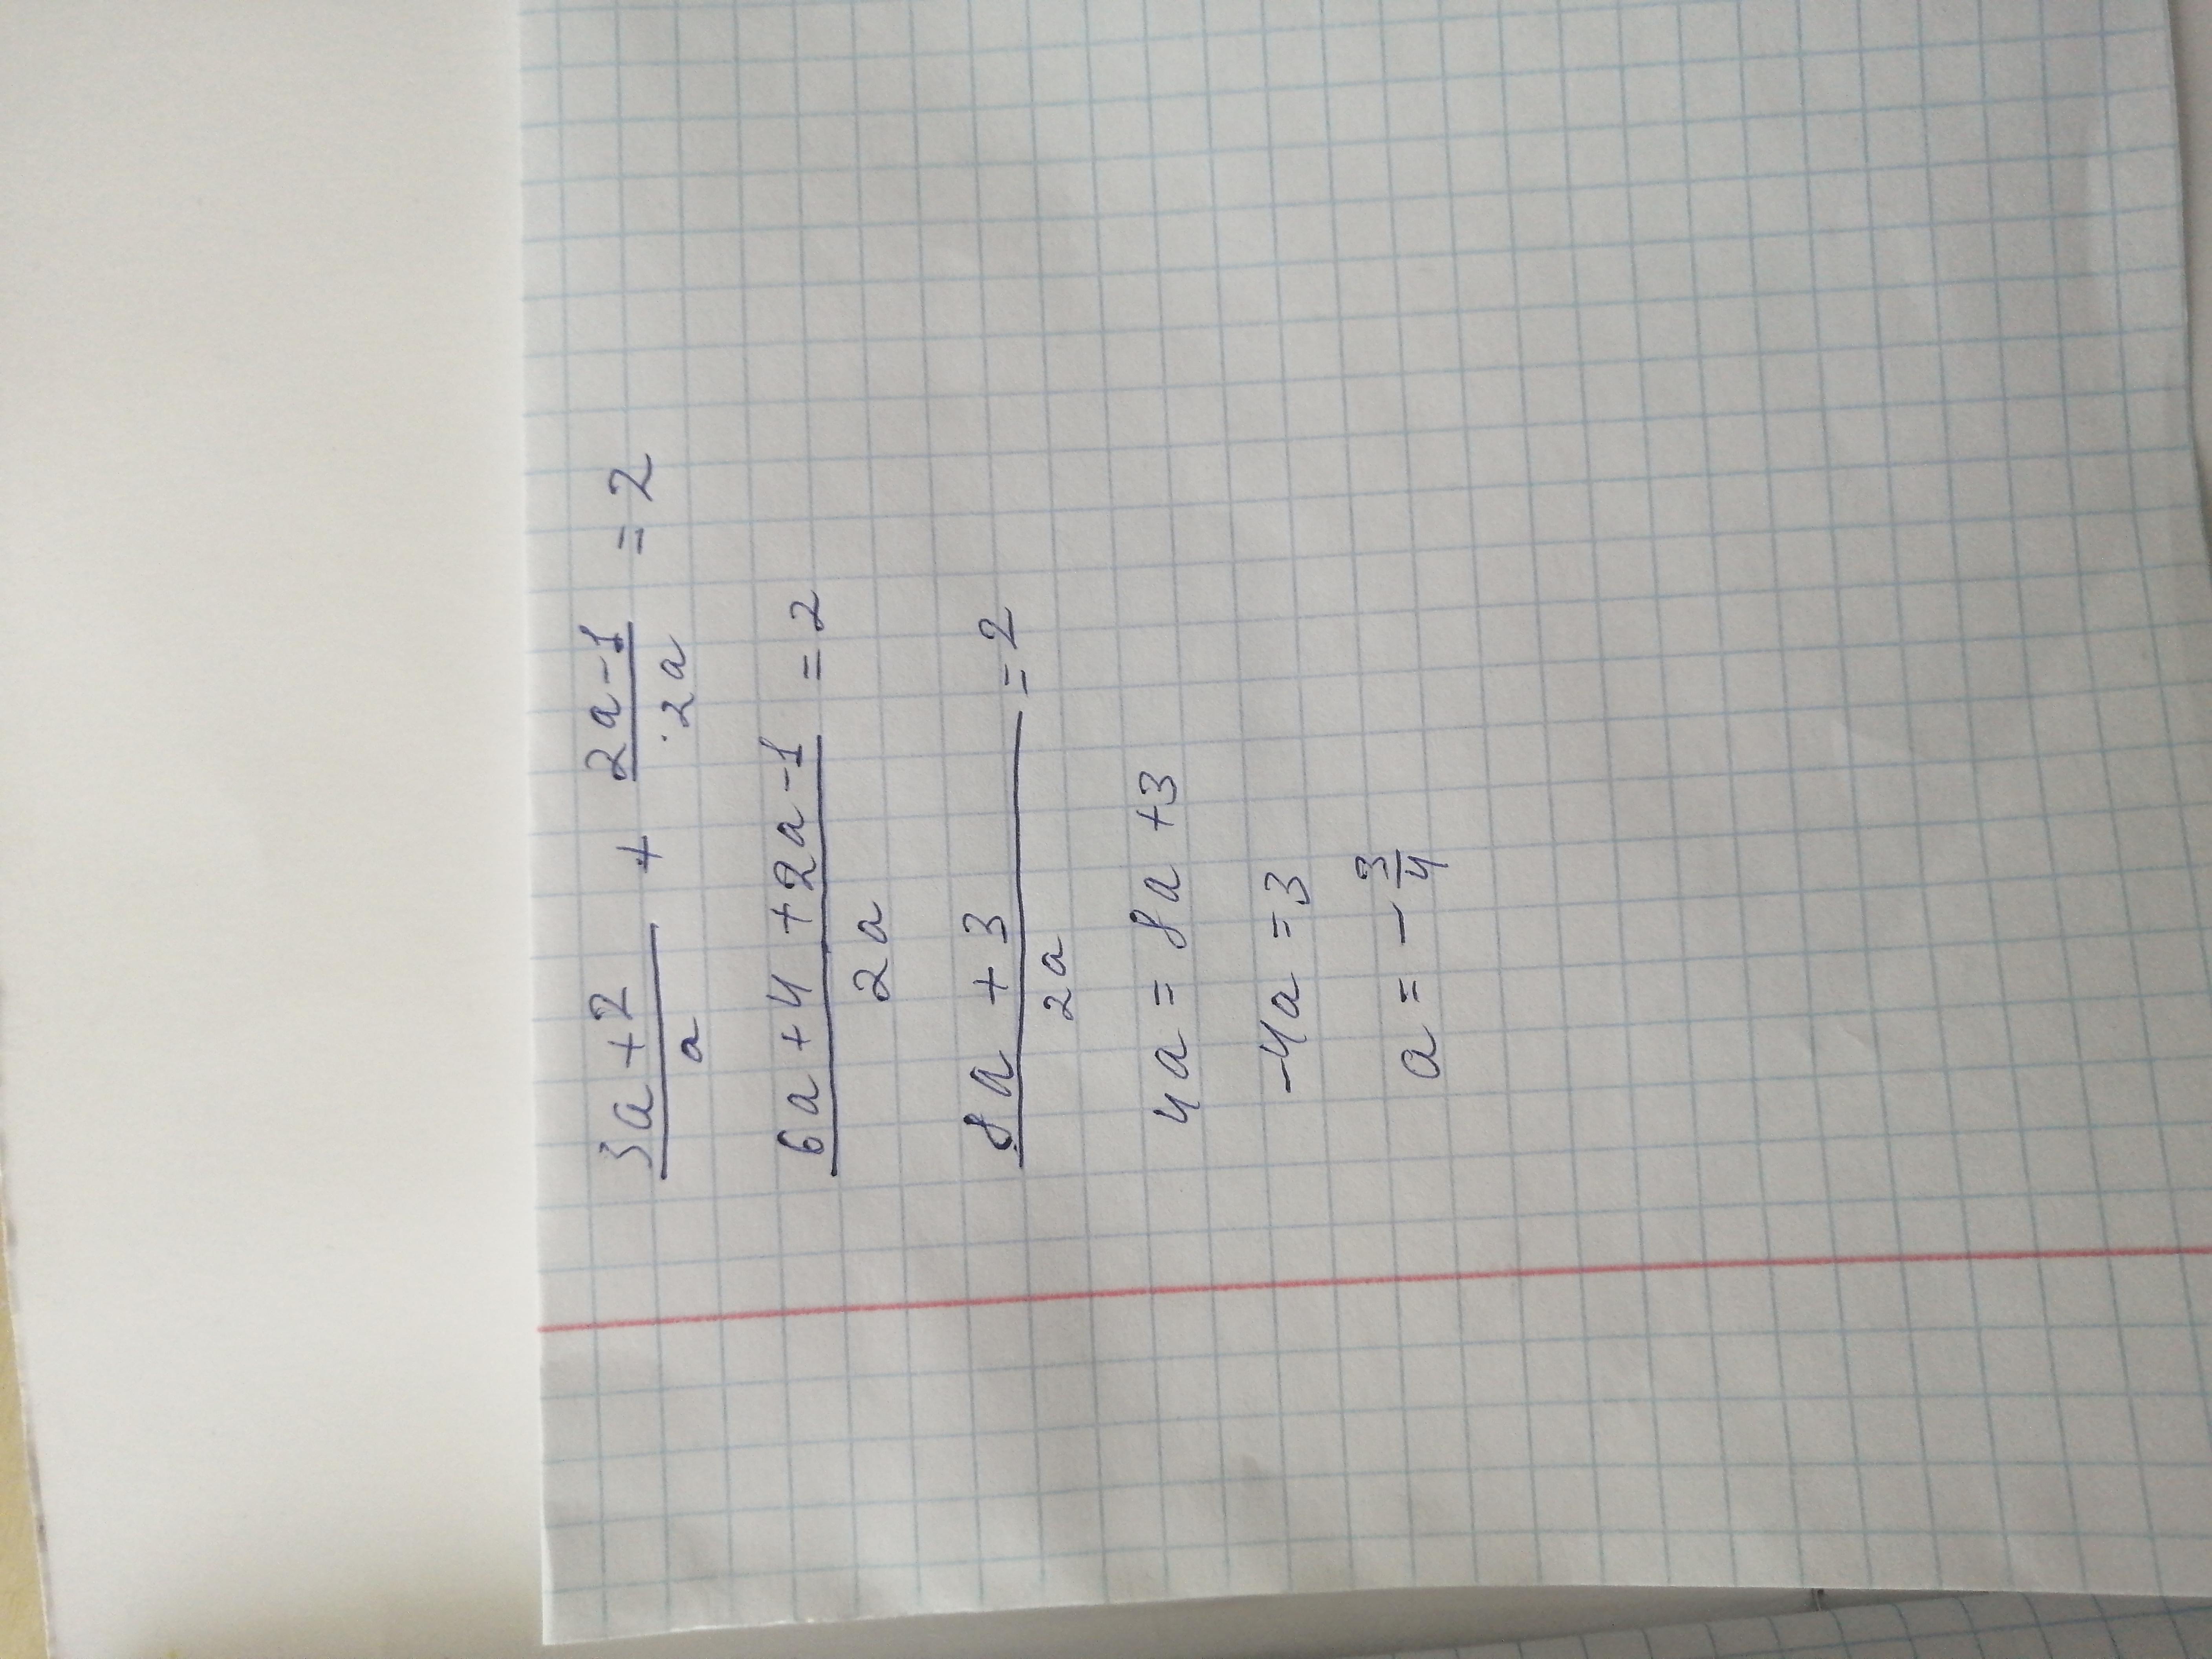 (3a+2)/a + (2a-1)/2a = 2
(6a+4+2a-1)/2a = 2
(8a+3)/2a = 2
4a = 8a+3
-4a = 3
a = -3/4